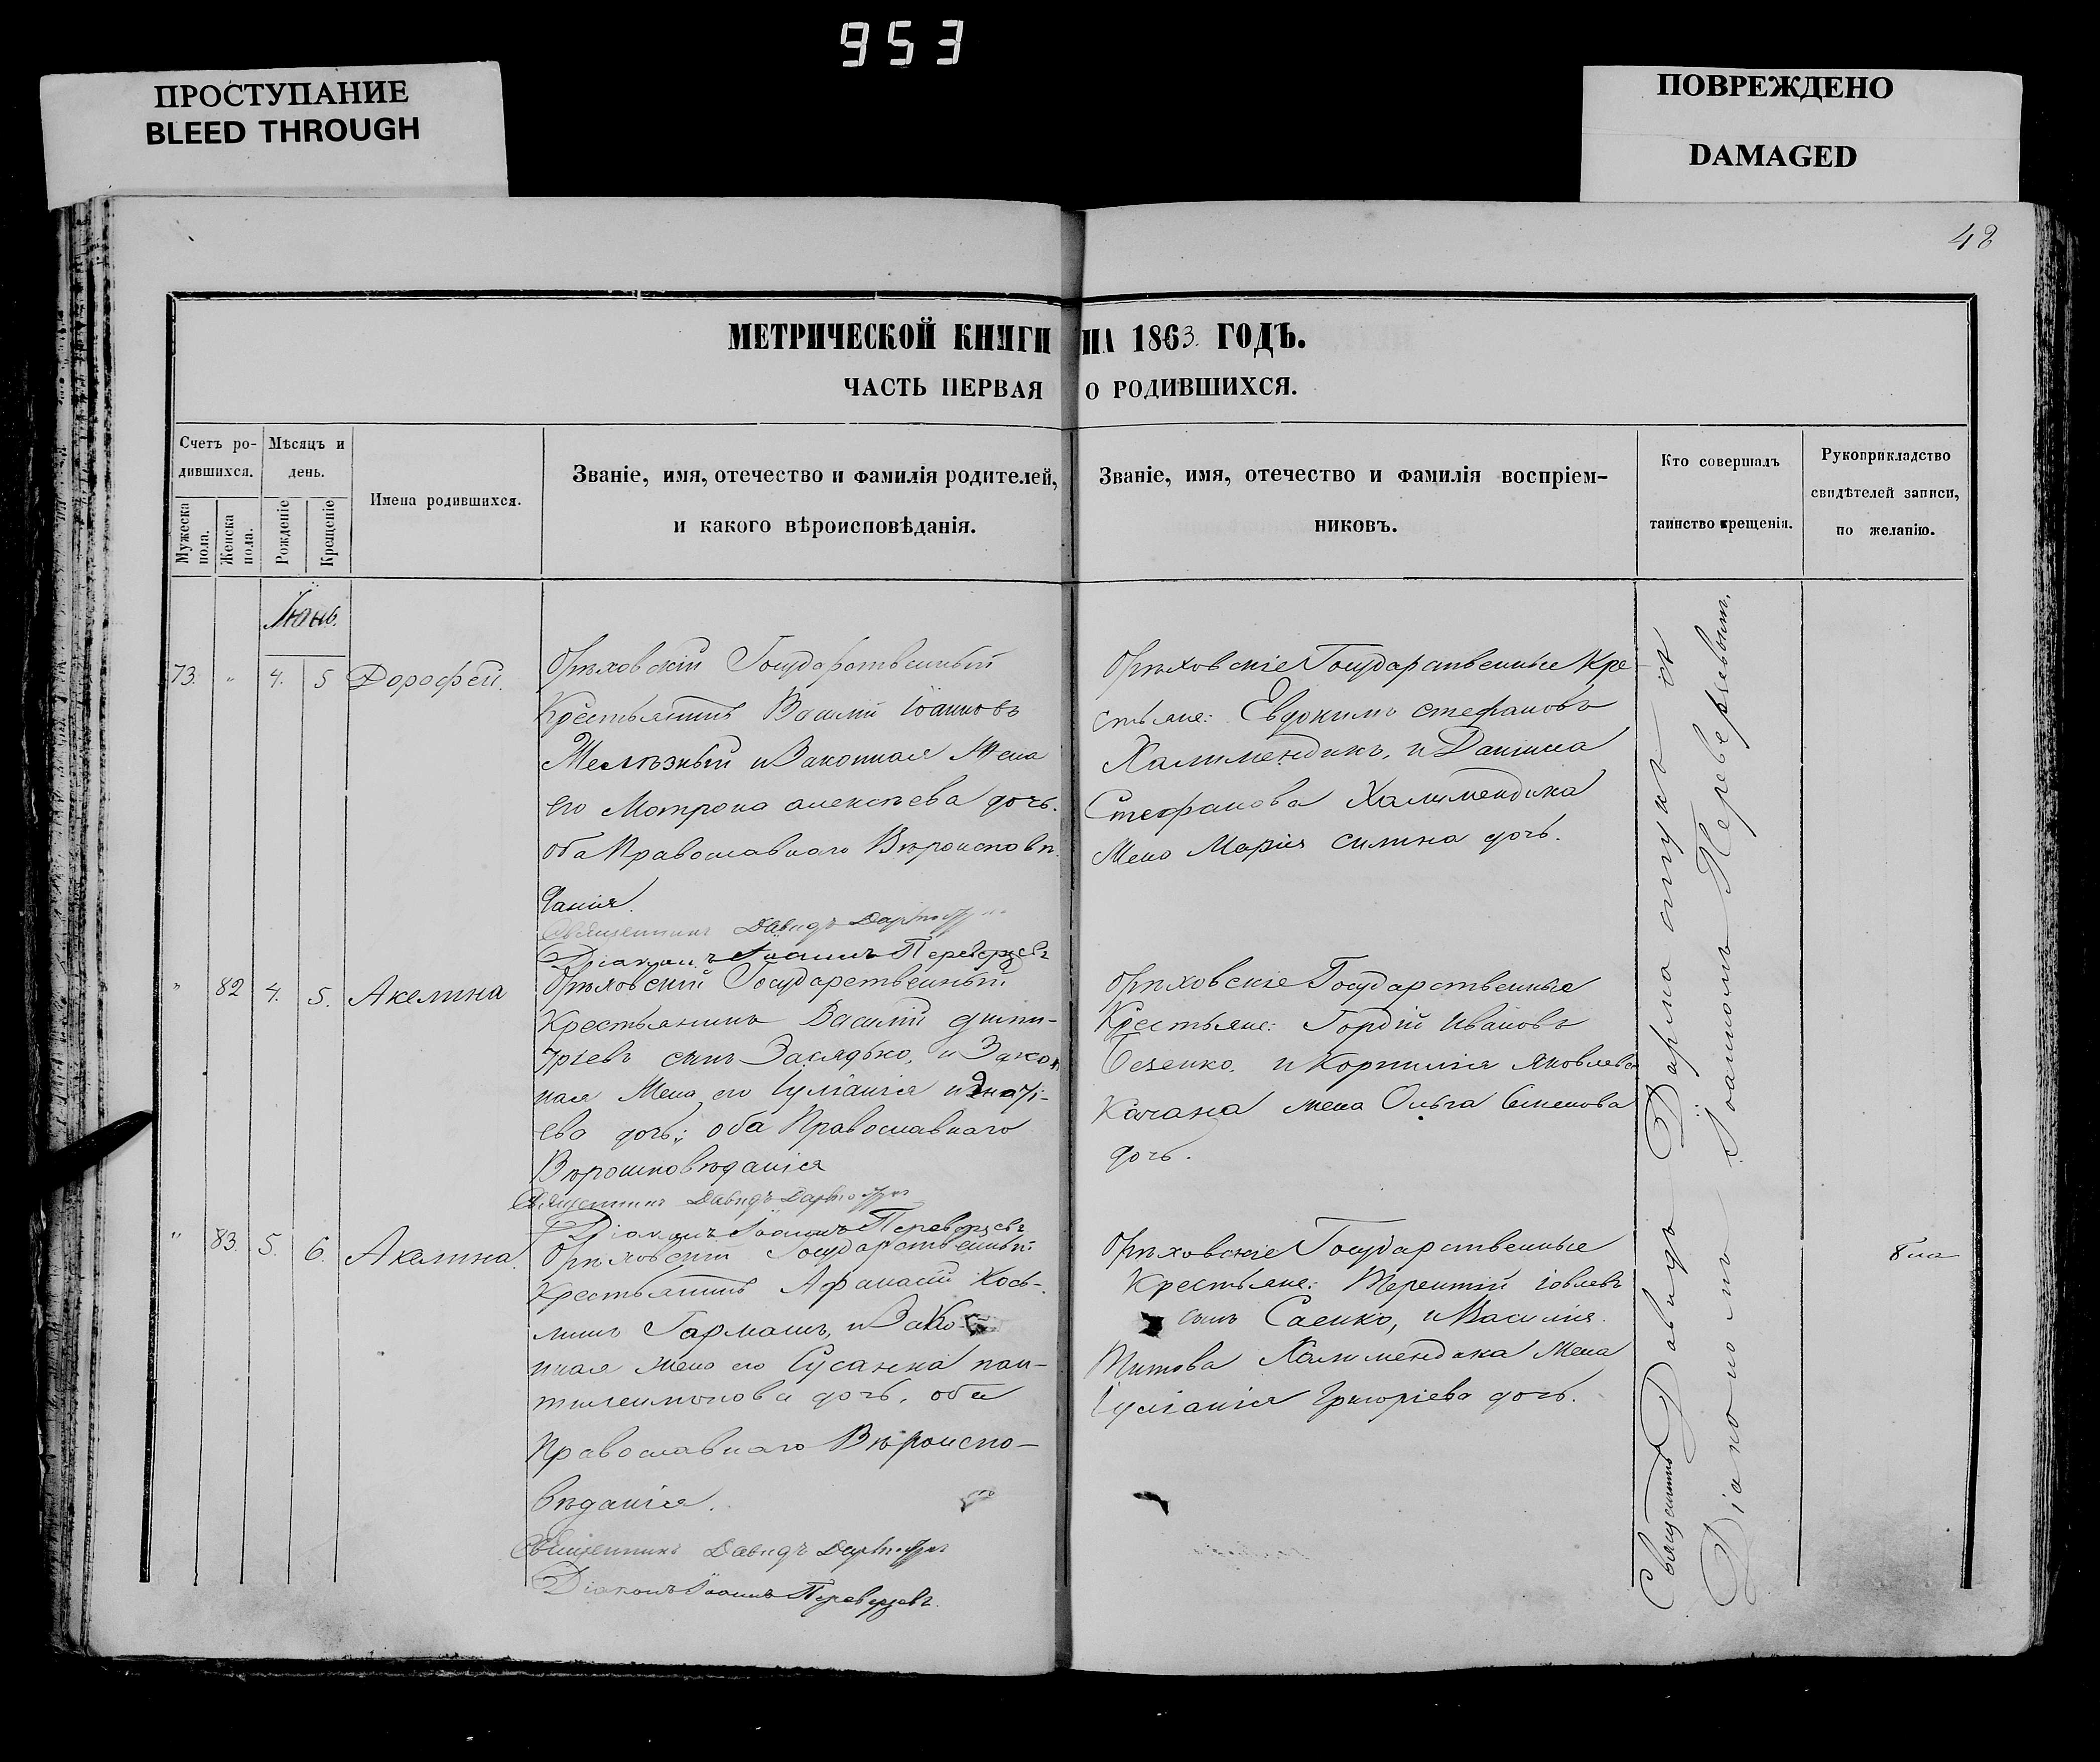 953
ПРОСТУПАНИЕ
BLEED THROUGH
ПОВРЕЖДЕНО
DAMAGED
48
МЕТРИЧЕСКОЙ КНИГИ НА 1863. ГОДЪ.
ЧАСТЬ ПЕРВАЯ О РОДИВШИХСЯ.
Счетъ ро-
дившихся.
Мужеска
пола.
Женска
пола.
Мѣсяцъ и
день.
Рожденіе
Крещеніе
Имена родившихся.
Званіе, имя, отечество и фамилія родителей,
и какого вѣроисповѣданія.
Званіе, имя, отечество и фамилія воспріем-
никовъ.
Кто совершалъ
таинство крещенія.
Рукоприкладство
свидѣтелей записи,
по желанію.
Іюнь.
73. " 4. 5 Дорофей.
Орѣховскій Государственный
Крестьянинъ Василій Іоанновъ
Желѣзный и Законная Жена
его Матрона Алексѣева дочь.
оба Православнаго Вѣроисповѣ
данія.
Священникъ Давидъ
Діаконъ Іоаннъ Переверзевъ
Орѣховскіе Государственные Кре
стьяне: Евдокимъ Стефановъ
Халимендикъ, и Даніила
Стефанова Халимендика
Жена Марія Силина дочь.
" 82 4. 5. Акелина
Орѣховскій Государственный
Крестьянинъ Василій Дими-
тріевъ сынъ Засядько, и Закон
ная Жена его Іуліанія
ева дочь; оба Православнаго
Вѣроисповѣданія
Священникъ Давидъ
Діаконъ Іоаннъ Переверзевъ
Орѣховскіе Государственные
Крестьяне: Гордій Ивановъ
и Корнилія Яковлева
Качана жена Ольга Семенова
дочь.
" 83. 5. 6. Акелина.
Орѣховскій Государственный
Крестьянинъ Афанасій Кось-
минъ Гармашъ, и Зако-
нная жена его Сусанна пан-
тилеимонова дочь, оба
Православнаго Вѣроиспо-
вѣданія.
Священникъ Давидъ
Діаконъ Іоаннъ Переверзевъ.
Орѣховскіе Государственные
Крестьяне: Терентій Іовлевъ
сынъ Саенко, и Василія
Титова Халимендика Жена
Іуліанія Григоріева дочь.
Священникъ Давидъ съ
Діакономъ Іоанномъ Переверзевымъ.